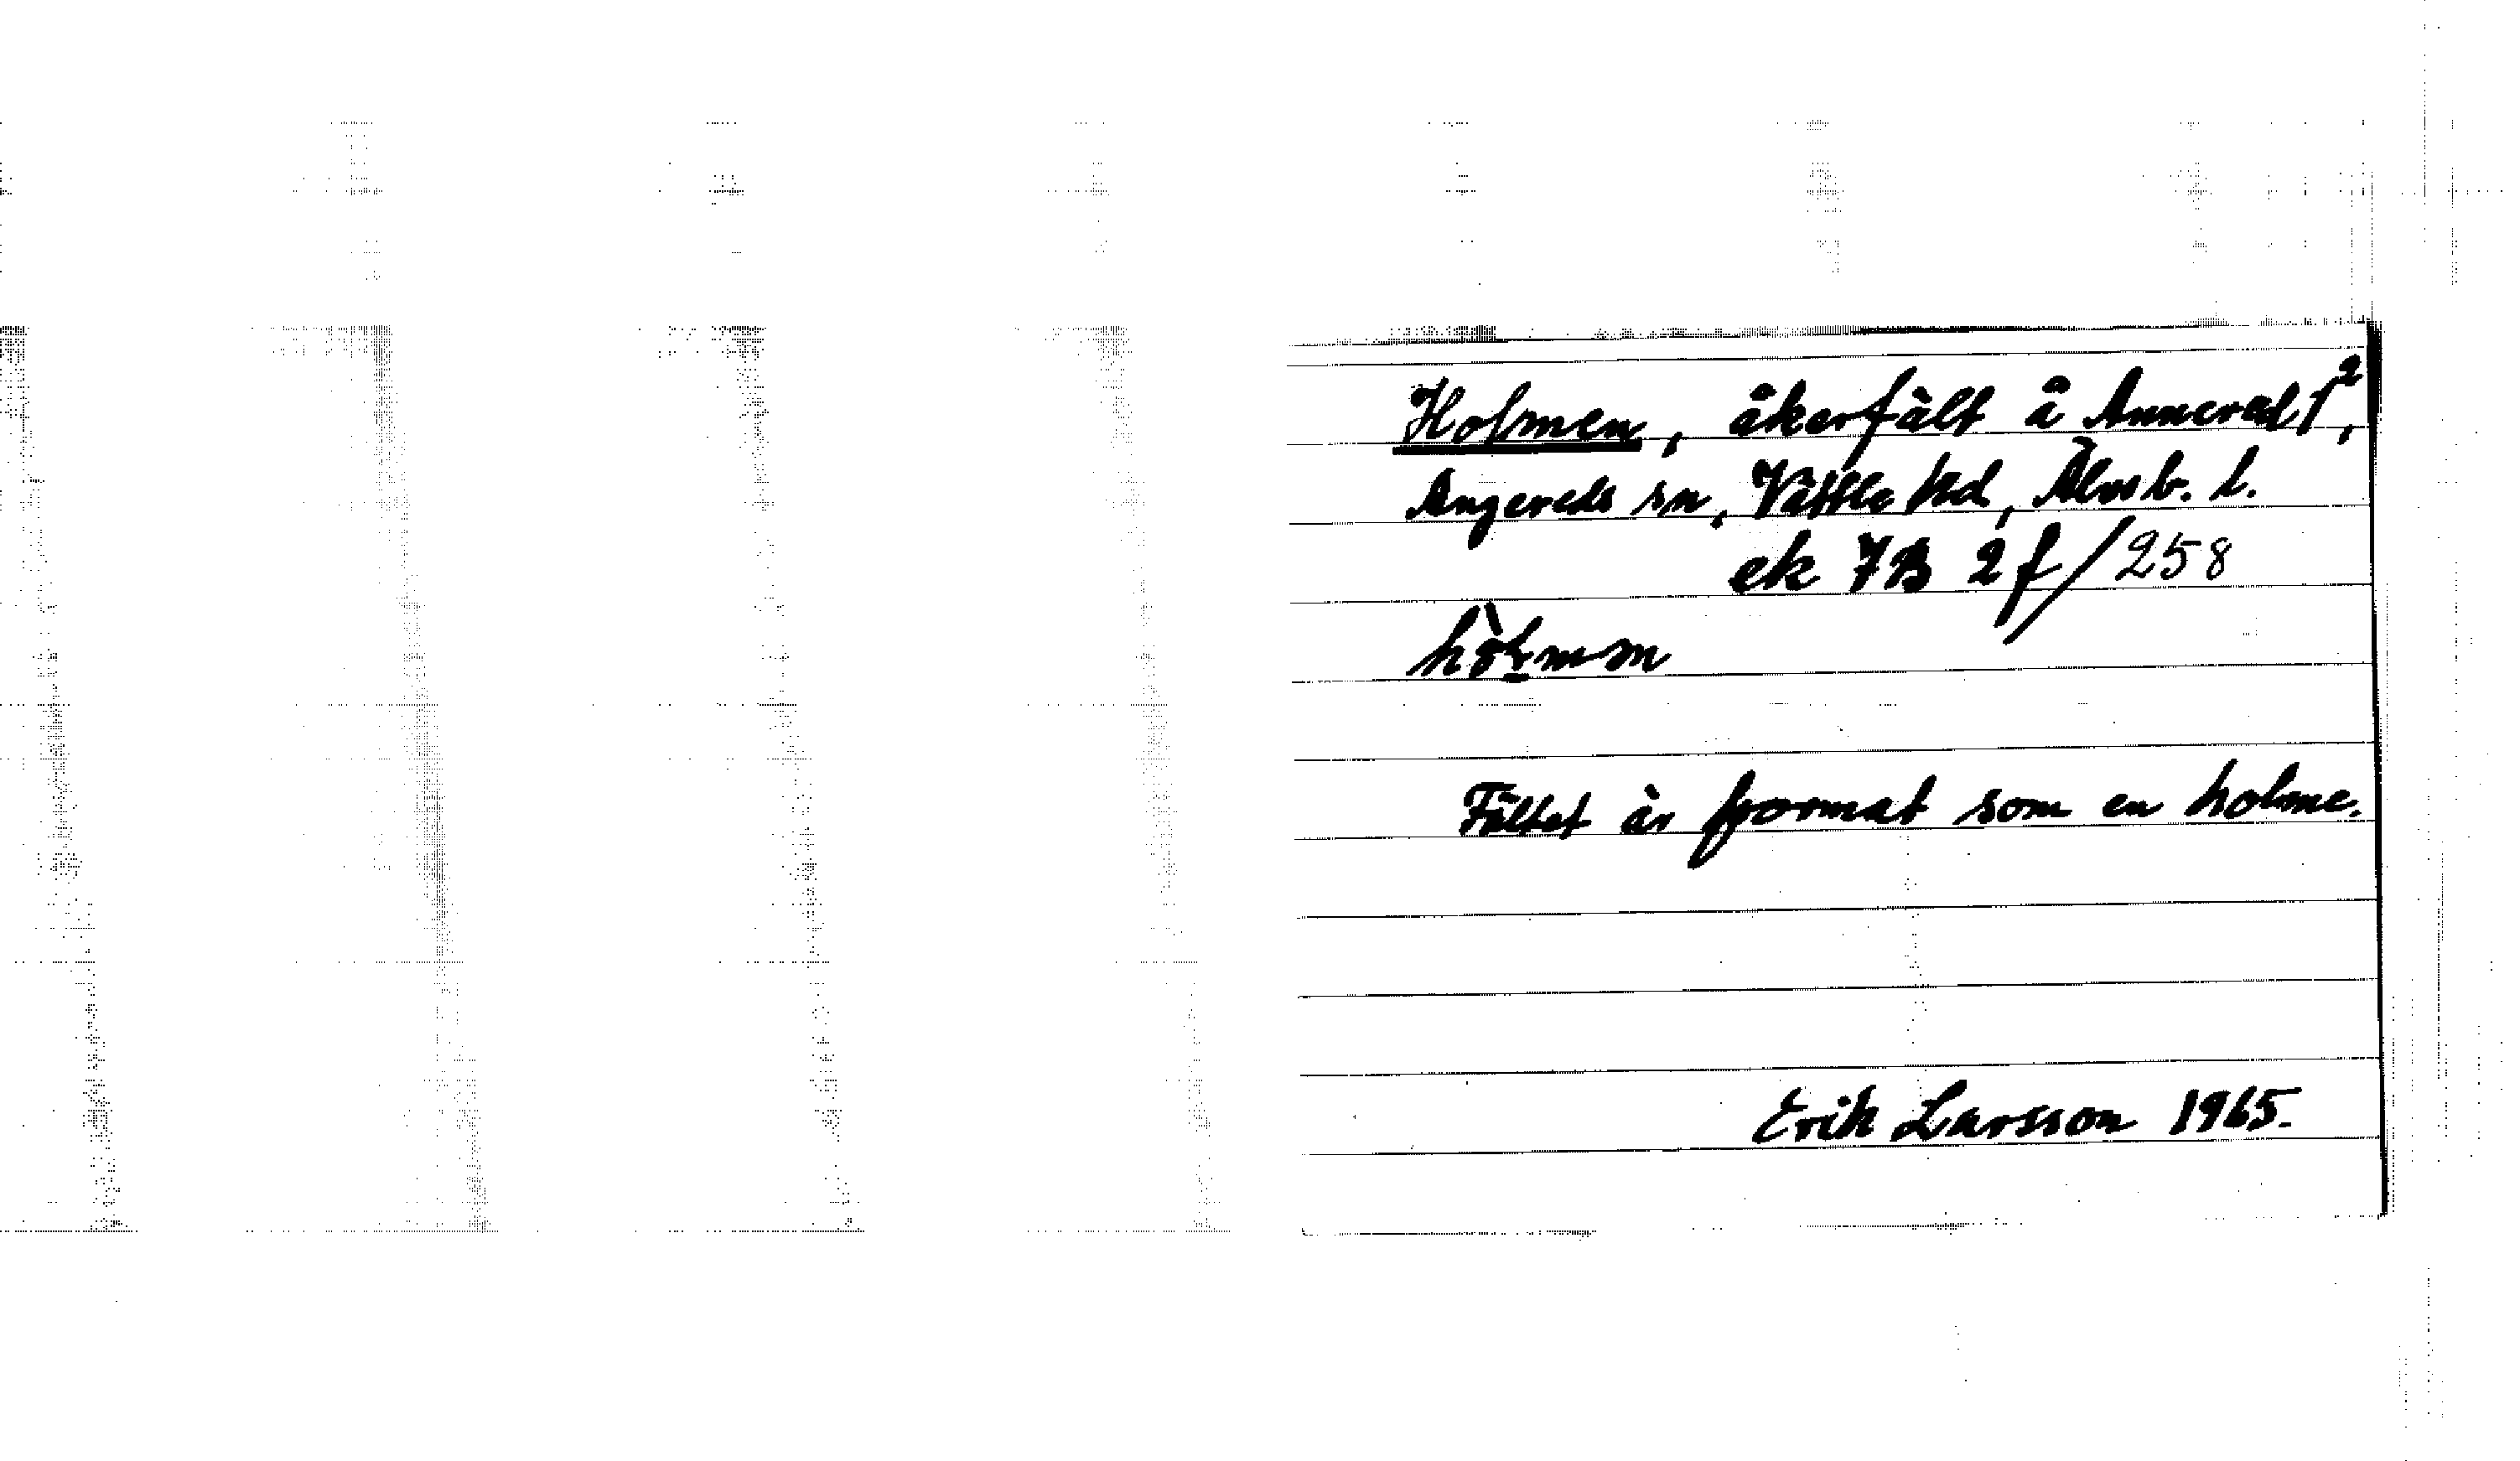 Holmen, åkerfält å Annered 1²,
Angereds sn, Vättle hd, Älvsb. l.
ek 7B 2f/258
hòl̠mm
Fältet är format som en holme.
Erik Larsson 1965.